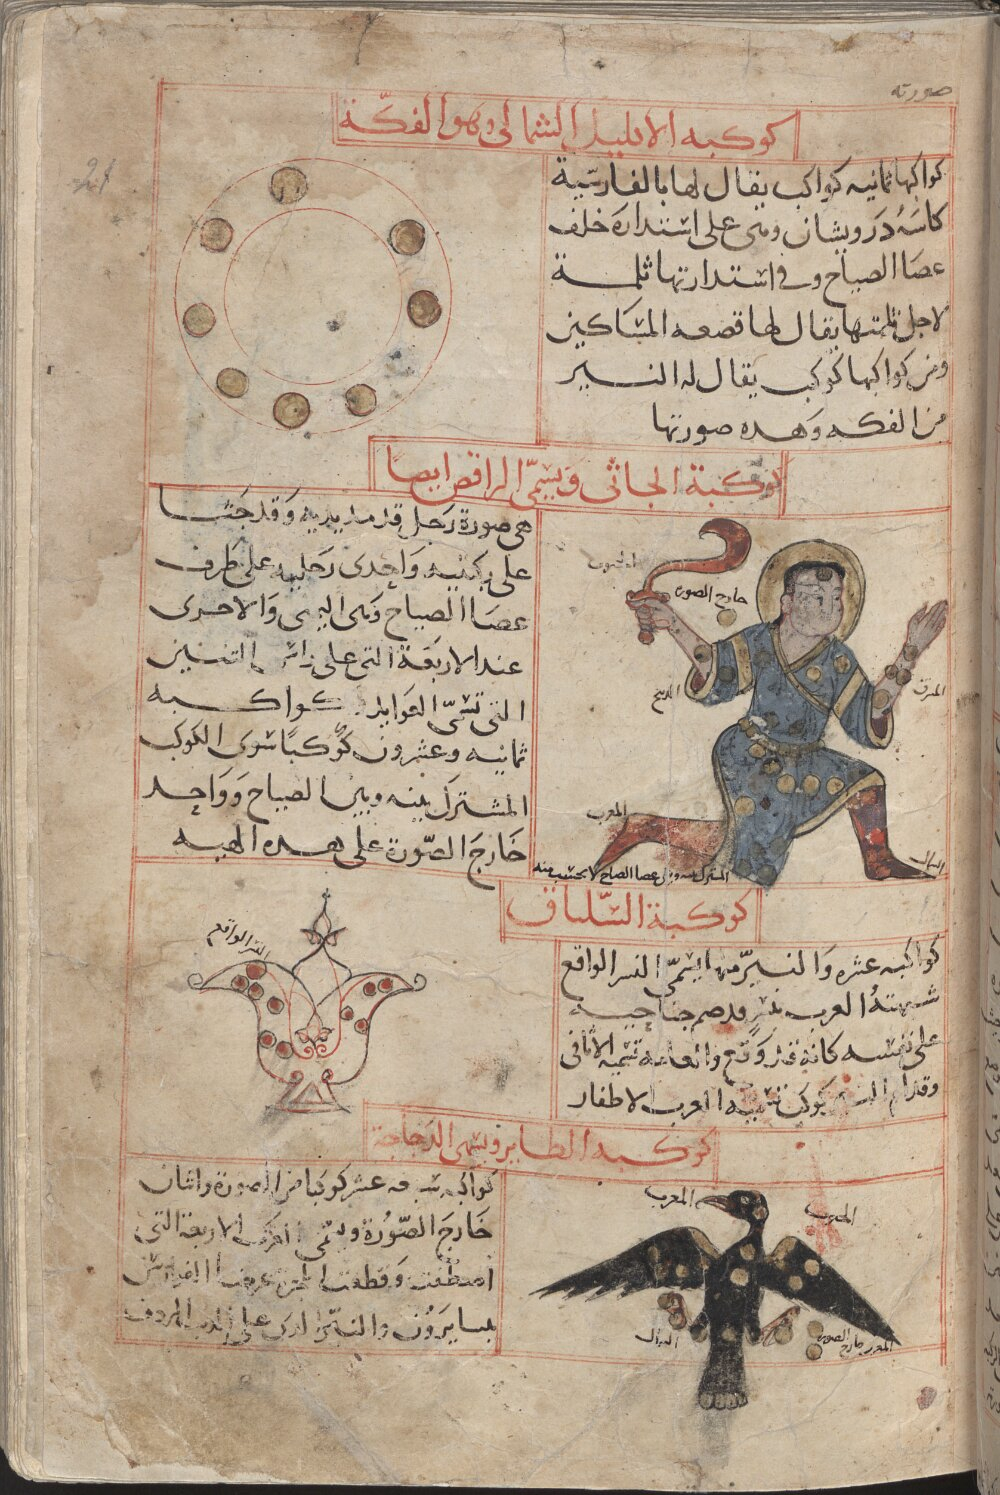 صورته
21
كوكبه الاكليل الشمالى وهو الفكّة
كواكبها ثمانيه كواكب يقال لها بالفارسّية
كاسَهُ دَرويشان وهى على استدارة خلف
عصا الصياح وفى استدارتها ثلمة
لاجل ثلمتها يقال لها قصعه المسَاكين
ومن كواكبها كوكب يقال له النير
من الفكه وهذه صورتها
كوكبة الجاثى ويسمّى الراقص ايضًا
هى صورة رَجل قد مد يديه وَقد جَثا
على ركبتيه وَاحدى رَجليه على طرف
عصَا الصياح وَهى اليمنى وَالاخرى
عند الاربعَة التى على راس التنين
التى تسَمّى العوايد كواكبه
ثمانيه وعشرون كوكبًا سوى الكوكب
المشترك بينه وبين الصياح وَوَاحد
خَارجَ الصّورة على هذه الهيه
الجنوب
خارج الصوره
المشرق
المغرب
الشمال
المشترك بينه وبين عصا الصياح لا يحتسب منه
كوكبة السّلياق
كواكبه عشره وَالنيّر منها يسمّى النسر الواقع
شبهتهُ العرب بنسر قد ضم جناحيه
على نفسه كانه قد وَقع والعامة تسميه الاثافى
وقدام النسر كوكب تسميه العرب الاظفار
النسر الواقع
كوكبه الطاير ويسمى الدجاجة
كواكبه سبعه عشر كوكبا من الصورة واثنان
خَارجَ الصّوُرة ويسمى العرب الاربعة التى
اصطفت وَقطعت المجره عرضا الفوارس
المغرب
الجنوب
الشمال
خارج الصوره